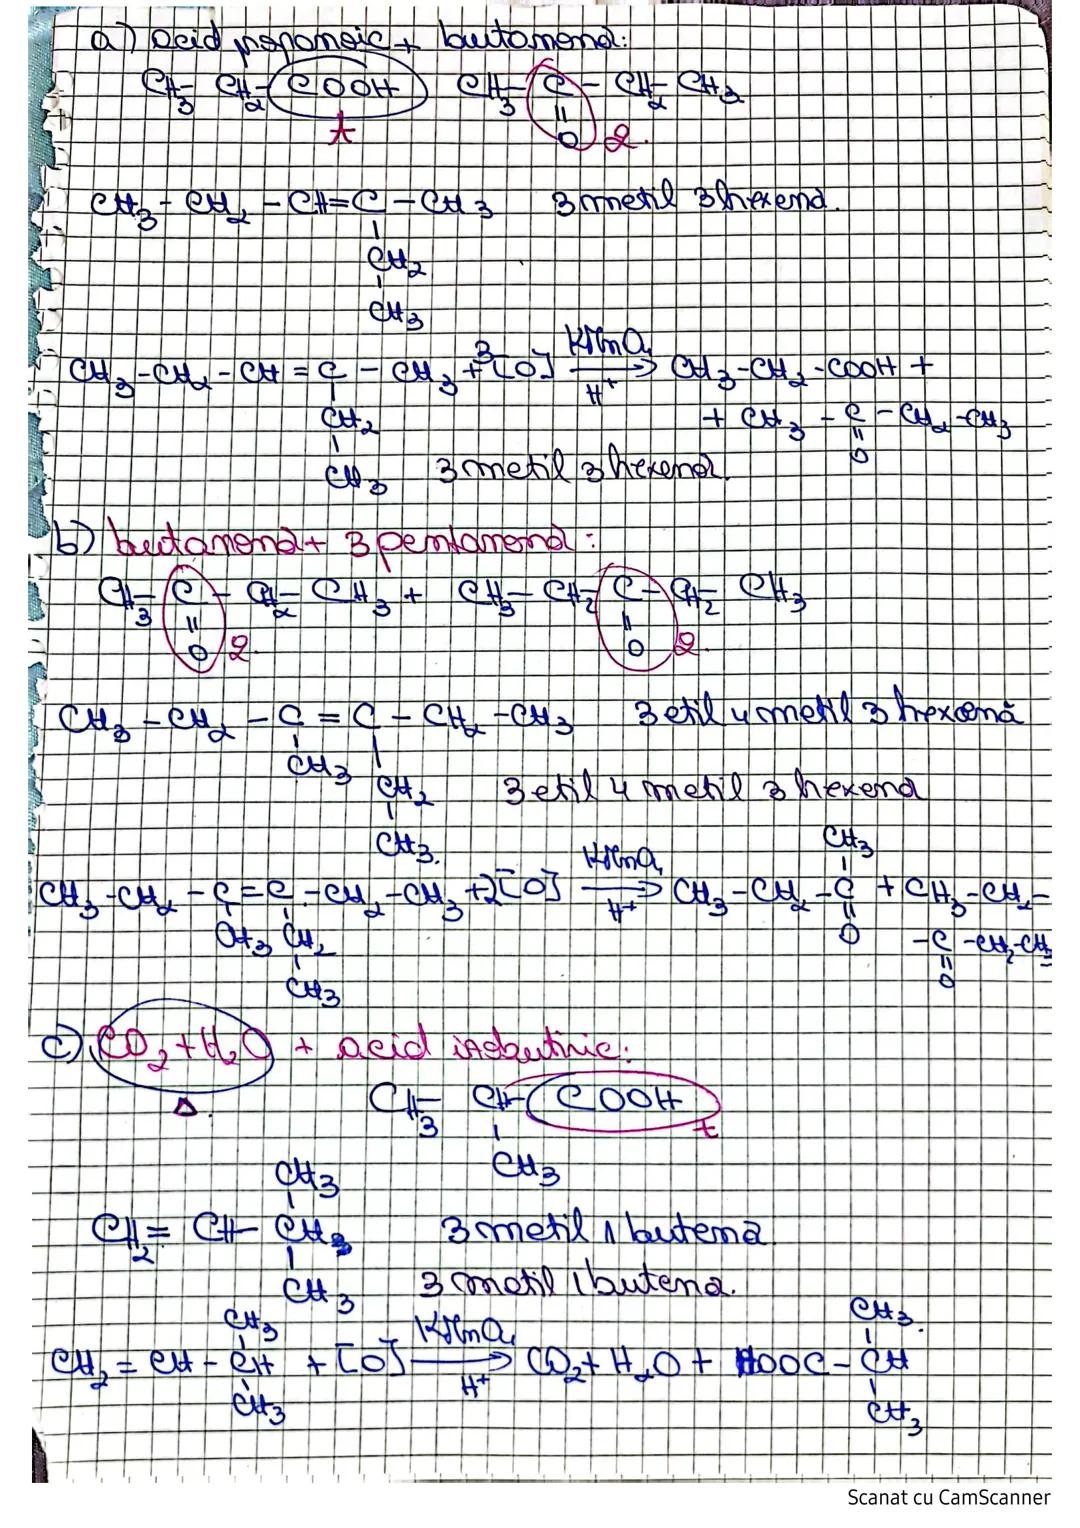 a) acid propanoic + butanonă:
CH3 - CH2 - COOH CH3 - C - CH2 - CH3
t || O 2.
CH3 - CH2 - CH = C - CH3 3 metil 3 hexenă.
|
CH2
|
CH3
CH3 - CH2 - CH = C - CH3 + 3[O] KMnO4 → H+ CH3 - CH2 - COOH +
| CH2 + CH3 - C - CH2 - CH3
| || O
CH3 3 metil 3 hexenă.
b) butanonă + 3 pentanonă:
CH3 - C - CH2 - CH3 + CH3 - CH2 - C - CH2 - CH3
|| ||
O 2. O 2.
CH3 - CH2 - C = C - CH2 - CH3 3 etil 4 metil 3 hexenă
| |
CH3 CH2 3 etil 4 metil 3 hexenă
|
CH3.
CH3
|
CH3 - CH2 - C = C - CH2 - CH3 + 2[O] KMnO4 → H+ CH3 - CH2 - C + CH3 - CH2 -
| | || O
CH3 CH2 - C - CH2 - CH3
| || O
CH3
c) CO2 + H2O + acid izobutiric:
Δ. CH3 - CH - COOH
| t
CH3
CH3
|
CH2 = CH - CH3 3 metil 1 butenă.
|
CH3 3 metil 1 butenă.
CH3 CH3.
| |
CH2 = CH - CH + [O] KMnO4 → H+ CO2 + H2O + HOOC - CH
| |
CH3 CH3
Scanat cu CamScanner